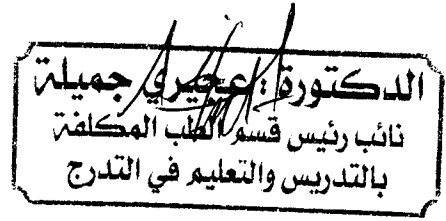 الدكتورة : عجيري جميلة
نائب رئيس قسم الطب المكلفة
بالتدريس والتعليم في التدرج